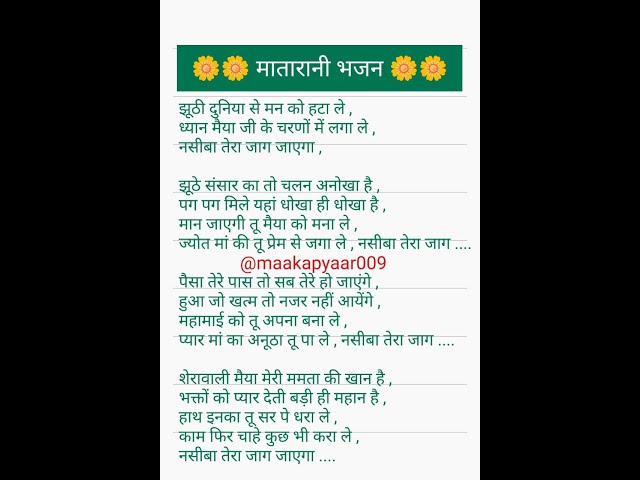 🌼🌼 मातारानी भजन 🌼🌼
झूठी दुनिया से मन को हटा ले ,
ध्यान मैया जी के चरणों में लगा ले ,
नसीबा तेरा जाग जाएगा ,
झूठे संसार का तो चलन अनोखा है ,
पग पग मिले यहां धोखा ही धोखा है ,
मान जाएगी तू मैया को मना ले ,
ज्योत मां की तू प्रेम से जगा ले , नसीबा तेरा जाग ....
@maakapyaar009
पैसा तेरे पास तो सब तेरे हो जाएंगे ,
हुआ जो खत्म तो नजर नहीं आयेंगे ,
महामाई को तू अपना बना ले ,
प्यार मां का अनूठा तू पा ले , नसीबा तेरा जाग ....
शेरावाली मैया मेरी ममता की खान है ,
भक्तों को प्यार देती बड़ी ही महान है ,
हाथ इनका तू सर पे धरा ले ,
काम फिर चाहे कुछ भी करा ले ,
नसीबा तेरा जाग जाएगा ....